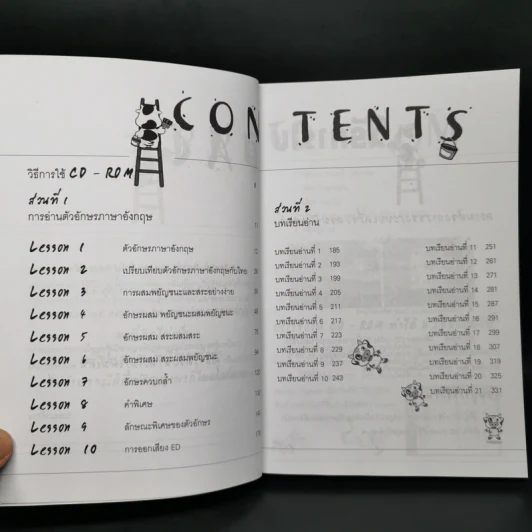 CONTENTS
วิธีการใช้ CD - ROM
ส่วนที่ 1
การอ่านตัวอักษรภาษาอังกฤษ
Lesson 1 ตัวอักษรภาษาอังกฤษ
Lesson 2 เปรียบเทียบตัวอักษรภาษาอังกฤษกับไทย
Lesson 3 การผสมพยัญชนะและสระอย่างง่าย
Lesson 4 อักษรผสม พยัญชนะผสมพยัญชนะ
Lesson 5 อักษรผสม สระผสมสระ
Lesson 6 อักษรผสม สระผสมพยัญชนะ
Lesson 7 อักษรควบกล้ำ
Lesson 8 คำพิเศษ
Lesson 9 ลักษณะพิเศษของตัวอักษร
Lesson 10 การออกเสียง ED
ส่วนที่ 2
บทเรียนอ่าน
บทเรียนอ่านที่ 1 185
บทเรียนอ่านที่ 2 193
บทเรียนอ่านที่ 3 199
บทเรียนอ่านที่ 4 205
บทเรียนอ่านที่ 5 211
บทเรียนอ่านที่ 6 217
บทเรียนอ่านที่ 7 223
บทเรียนอ่านที่ 8 229
บทเรียนอ่านที่ 9 237
บทเรียนอ่านที่ 10 243
บทเรียนอ่านที่ 11 251
บทเรียนอ่านที่ 12 261
บทเรียนอ่านที่ 13 271
บทเรียนอ่านที่ 14 281
บทเรียนอ่านที่ 15 287
บทเรียนอ่านที่ 16 291
บทเรียนอ่านที่ 17 299
บทเรียนอ่านที่ 18 307
บทเรียนอ่านที่ 19 319
บทเรียนอ่านที่ 20 325
บทเรียนอ่านที่ 21 331